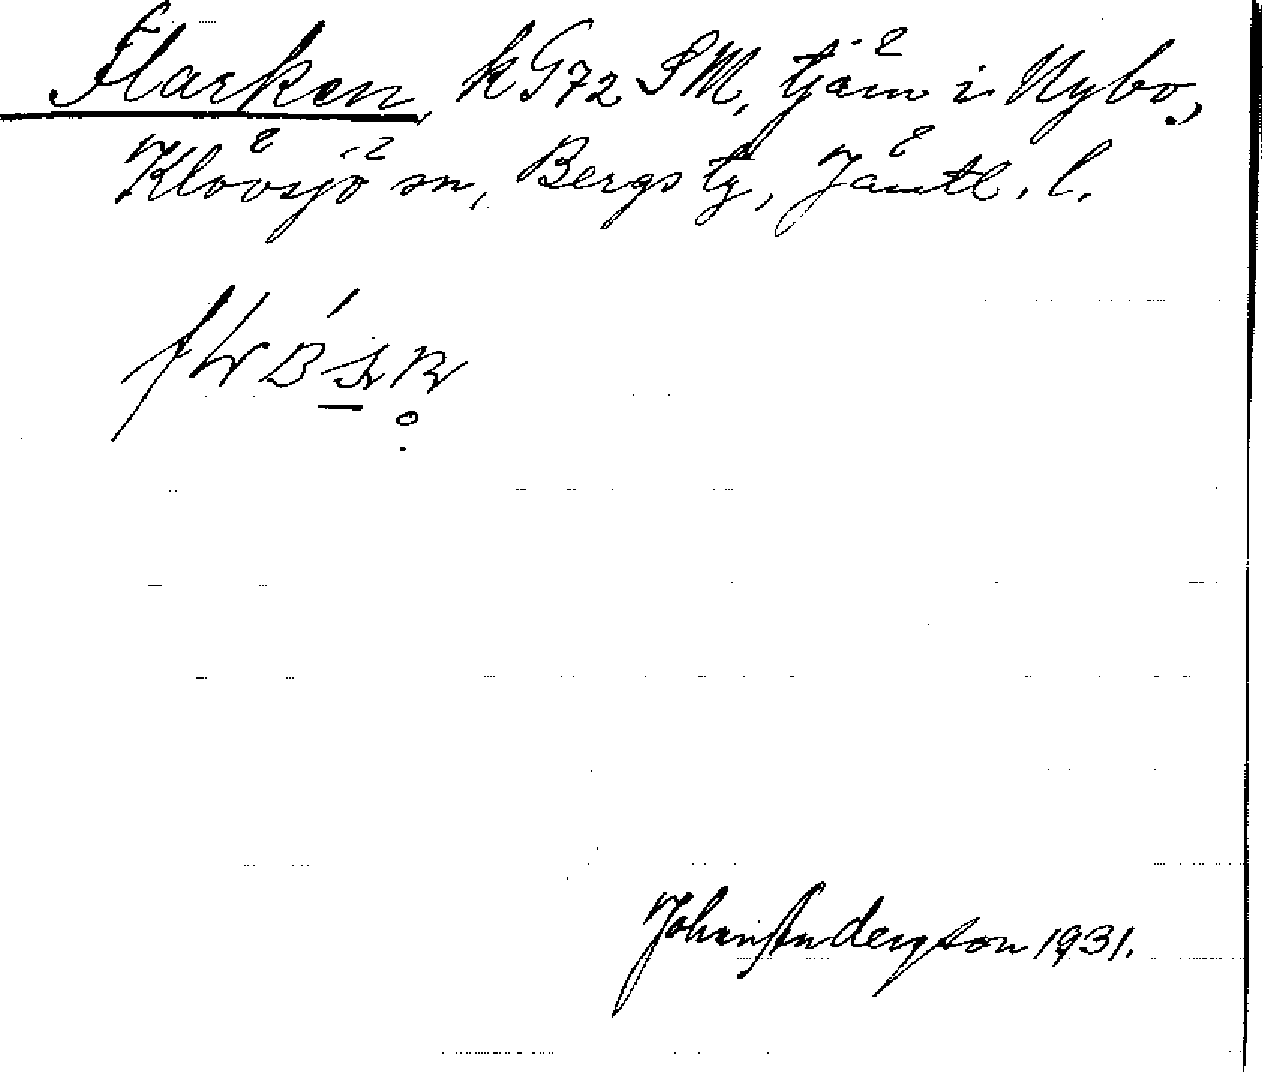 Flarken, k G72 SM, tjärn i Nybo,
Klövsjö sn, Bergs tg, Jämtl. l.
Johan Andersson 1931.